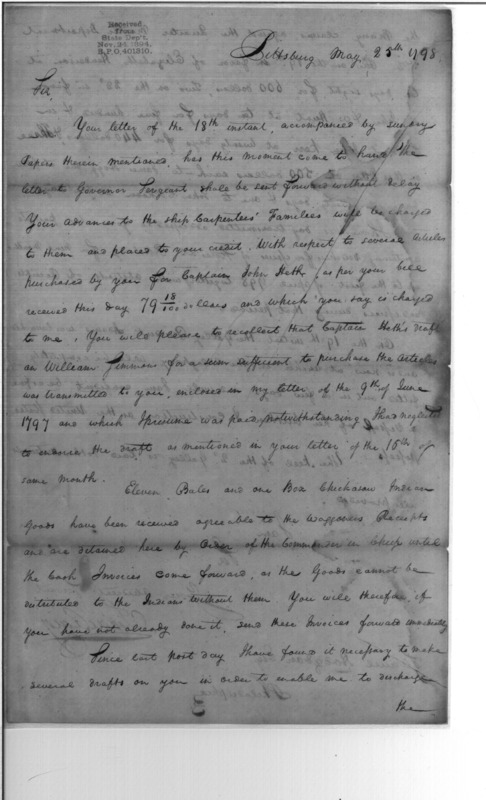 Received
from
State Dep't.
Nov. 22, 1894.
R.P.O. 401310.
Pittsburg May 25th 1798
Sir,
Your letter of the 18th instant, accompanied by sundry
Papers therein mentioned, has this moment come to hand. The
letter to Governor Sergeant shall be sent forward without delay
Your advances to the ship Carpenters' Families will be charged
to them and placed to your credit. With respect to several articles
purchased by you for Captain John Heth, as per your bill
received this day 79 18/100 dollars and which you say is charged
to me, You will please to recollect that Captain Heth's draft
on William Simmons for a sum sufficient to purchase the articles
was transmitted to you, inclosed in my letter of the 9th of June
1797 and which I presume was paid, notwithstanding I had neglected
to endorse the draft as mentioned in your letter of the 16th of
same month.
Eleven Bales and one Box Chickasaw Indian
Goods have been received agreeable to the Waggoners Receipts
and are detained here by Order of the Commander in Chief until
the Cash Invoices come forward, as the Goods cannot be
distributed to the Indians without them. You will therefore, if
you have not already done it, send these Invoices forward immediately
Since last post day I have found it necessary to make
several drafts on you in order to enable me to discharge
the